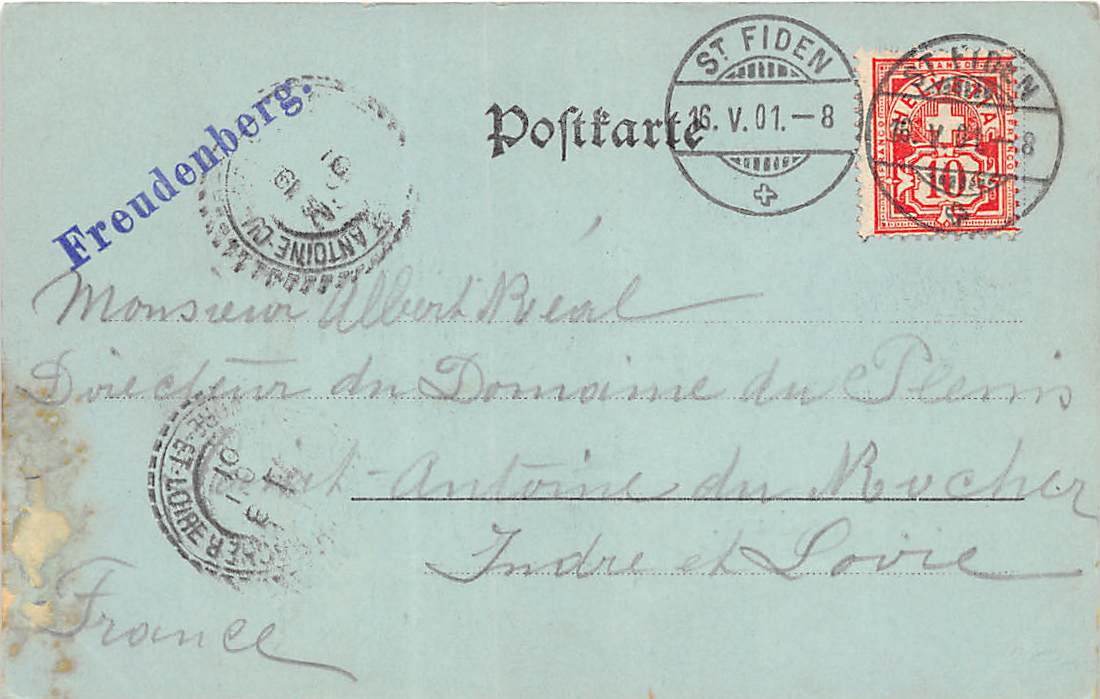 Freudenberg.
Poſtkarte
ST FIDEN
16. V. 01. – 8
ST FIDEN
V. 01. – 8
FRANCO
HELVETIA
10
ST ANTOINE-DU
19
01
INDRE-ET-LOIRE
Monsieur Albert Réal
Directeur du Domaine du Plessis
Saint-Antoine du Rocher
Indre et Loire
France